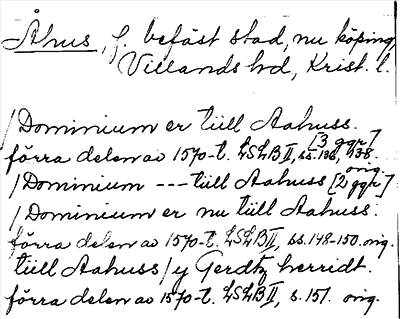 Åhus, f. befäst stad, nu köping,
Villands hd, Krist. l.
/Dominium er tüll Aahuss. [3 ggr]
förra delen av 1570-t. LSLB II, ss. 136, 138. orig.
/Dominium --- tüll Aahuss [2 ggr]
/Dominium er nu tüll Aahuss.
förra delen av 1570-t. LSLB II, ss. 148-150. orig.
tüll Aahuss/y Gerdtz herridt.
förra delen av 1570-t. LSLB II, s. 151. orig.